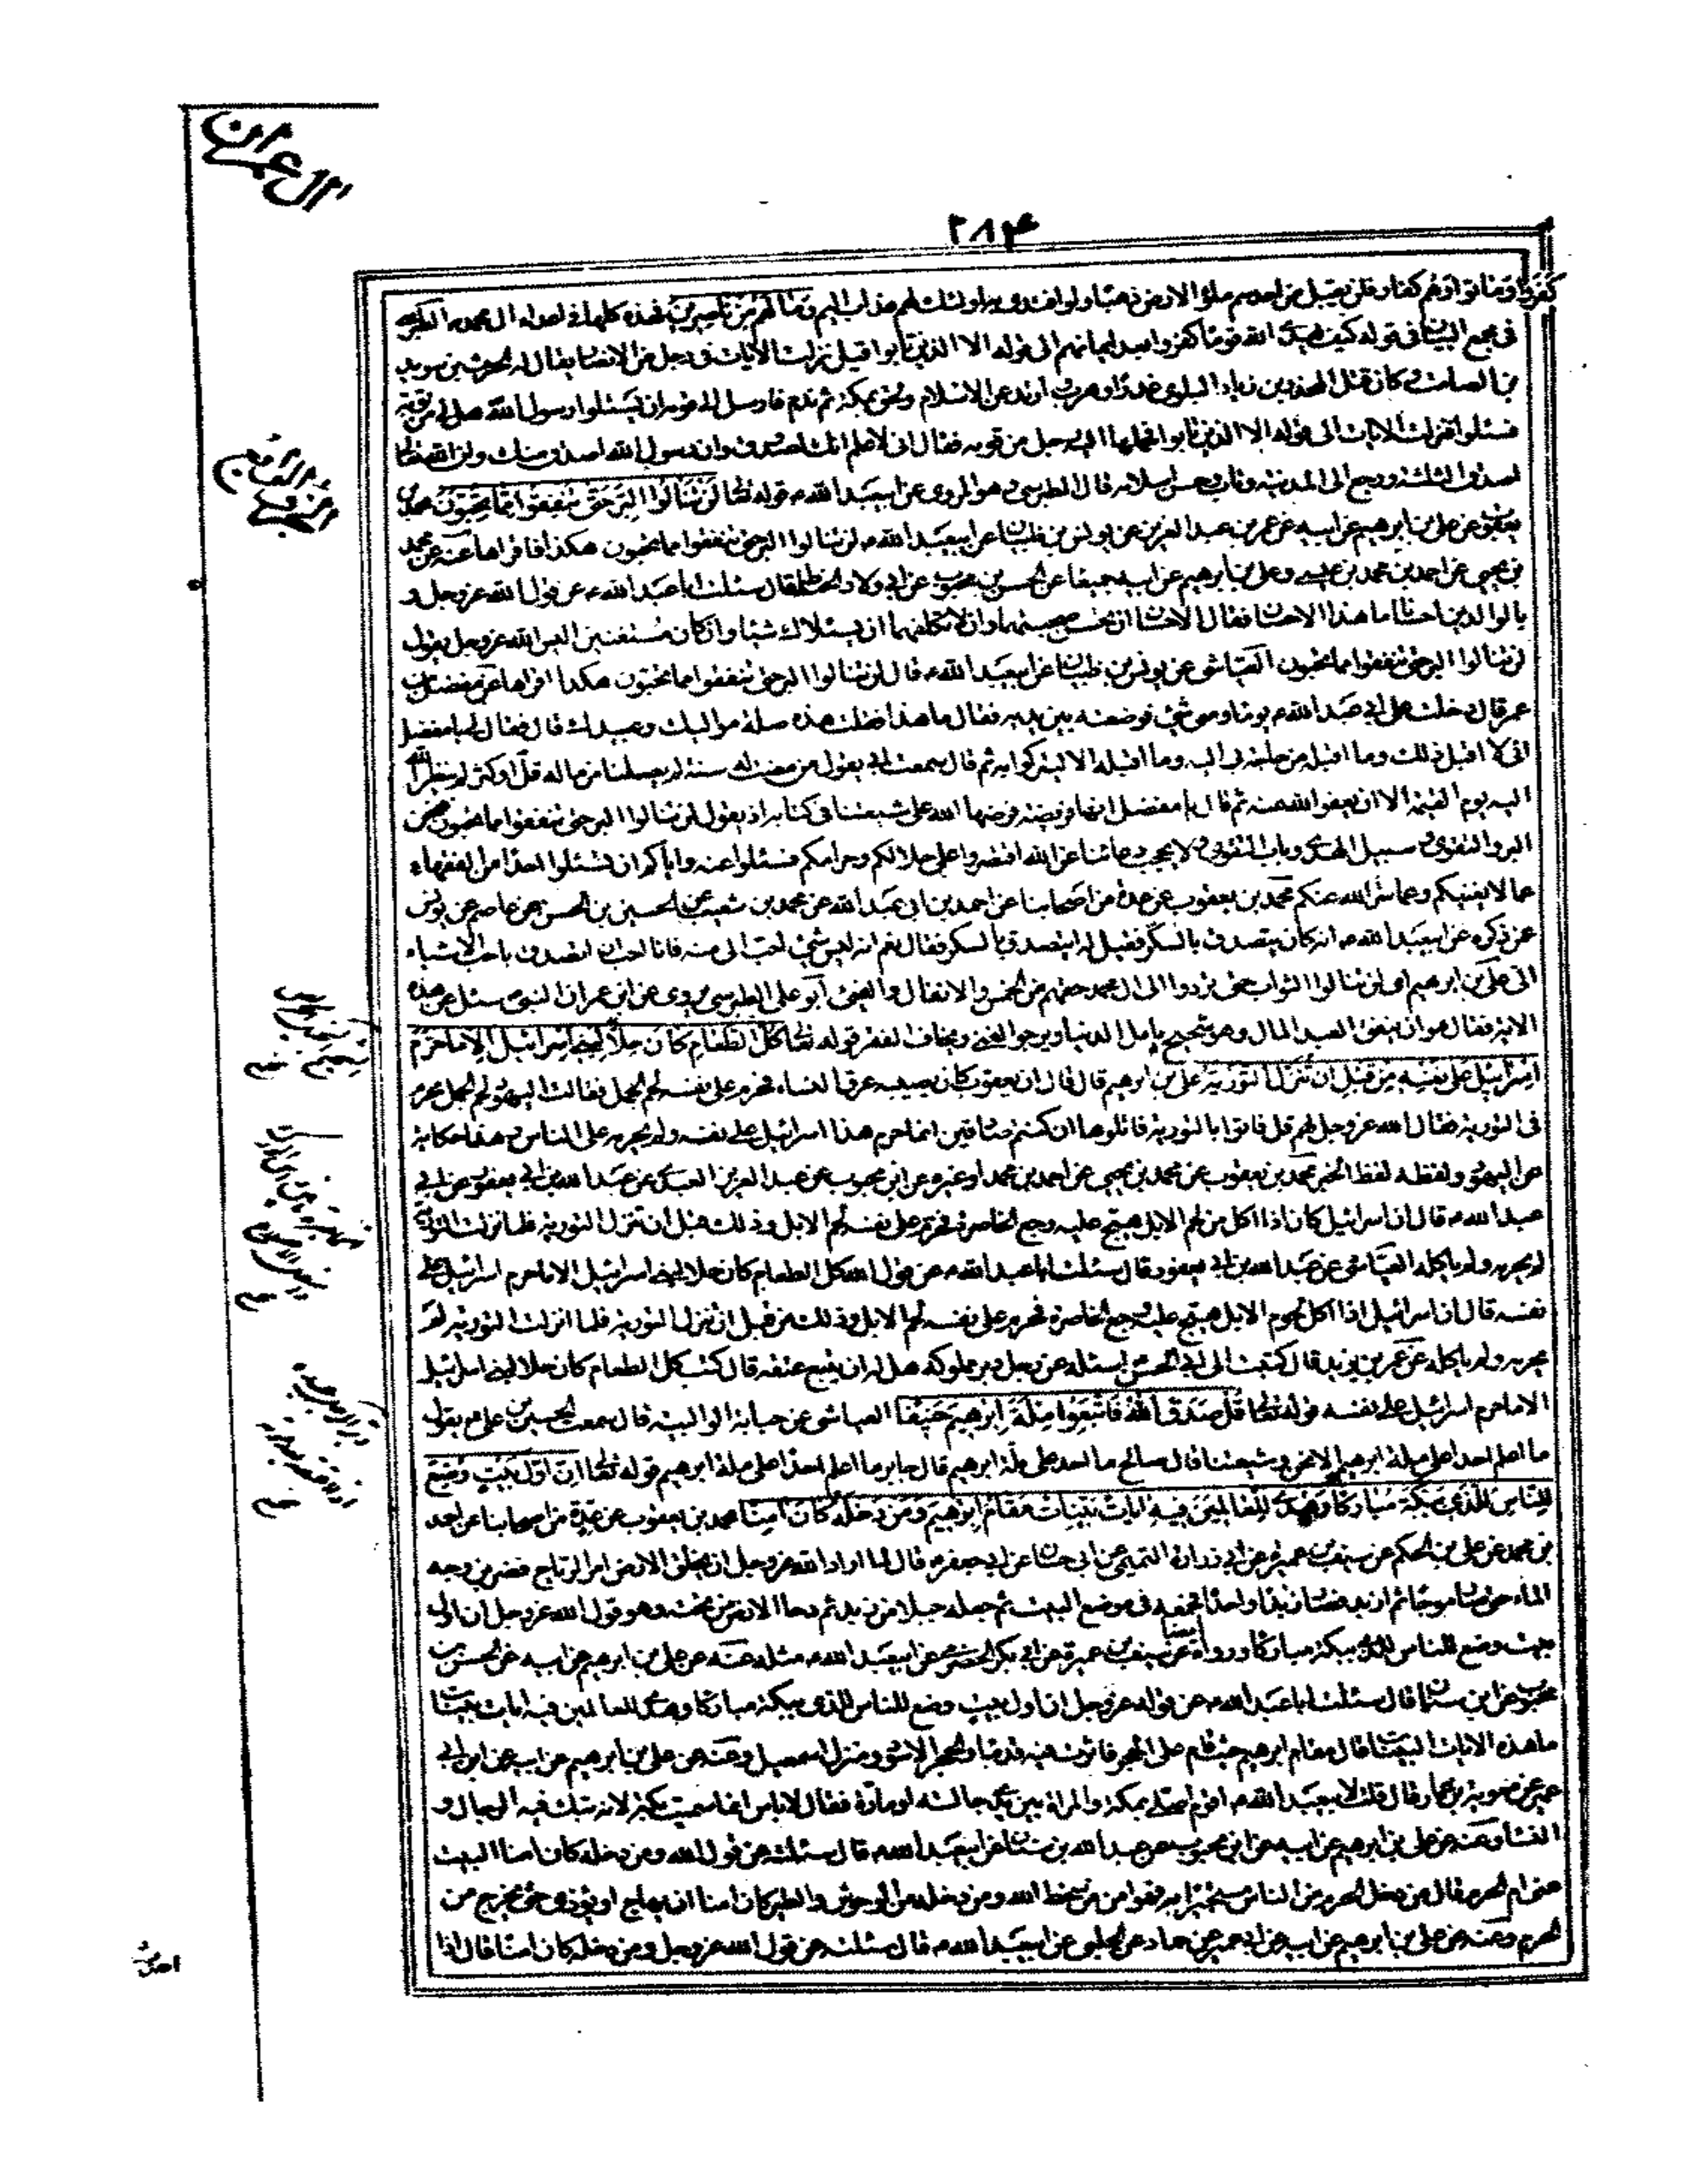 ال عمران
٢٨۴
كفروا وماتوا وهم كفار فلن يقبل من احدهم ملؤ الارض ذهبا ولو افتدى به اولئك لهم عذاب اليم وما لهم من ناصرين فهذه كلها فى اعداء ال محمد الطبرسى
فى مجمع البيان فى قوله كيف يهدى الله قوما كفروا بعد ايمانهم الى قوله الا الذين تابوا قيل نزلت الايات فى رجل من الانصار يقال له الحرث بن سويد
بن الصامت وكان قتل المحذر بن زياد البلوى غدرا وهرب وارتد عن الاسلام ولحق بمكة ثم ندم فارسل الى قومه ان يسئلوا رسول الله صل لى من توبة
فسئلوا فنزلت الايات الى قوله الا الذين تابوا فحملها اليه رجل من قومه فقال انى لاعلم انك لصدوق وان رسول الله اصدق منك وان الله تعالى
اصدق الثلثة ورجع الى المدينة وتاب وحسن اسلامه قال الطبرسى وهو المروى عن ابيعبد الله ع قوله تعالى لن تنالوا البر حتى تنفقوا مما تحبون محمد بن
يعقوب عن على بن ابرهيم عن ابيه عن عمر بن عبد العزيز عن يونس بن ظبيان عن ابيعبد الله ع لن تنالوا البر حتى تنفقوا ما تحبون هكذا فاقراها عنه عن محمد
بن يحيى عن احمد بن محمد بن عيسى وعلى بن ابرهيم عن ابيه جميعا عن الحسن بن محبوب عن ابى ولاد الحناط قال سئلت ابا عبد الله ع عن قول الله عز وجل و
بالوالدين احسانا ما هذا الاحسان فقال الاحسان ان تحسن صحبتهما وان لا تكلفهما ان يسئلاك شيئا وان كان مستغنين اليس الله عز وجل يقول
لن تنالوا البر حتى تنفقوا مما تحبون العياشى عن يونس بن ظبيان عن ابيعبد الله ع قال لن تنالوا البر حتى تنفقوا ما تحبون هكذا اقراها عن مفضل بن
عمر قال دخلت على ابى عبد الله ع يوما ومعى شئ فوضعته بين يديه فقال ما هذا فقلت هذه صلة مواليك وعبيدك قال فقال لى يا مفضل
انى لا اقبل ذلك وما اقبل من حاجة بى اليه وما اقبله الا ليزكوا به ثم قال سمعت ابى يقول من مضت له سنة لم يصلنا من ماله قل او كثر لم ينظر الله
اليه يوم القيمة الا ان يعفو الله عنه ثم قال يا مفضل انها فريضة فرضها الله على شيعتنا فى كتابه اذ يقول لن تنالوا البر حتى تنفقوا مما تحبون فنحن
البر والتقوى وسبيل الهدى وباب التقوى ولا يحجب دعائنا عن الله اقتصروا على حلالكم وحرامكم فسئلوا عنه واياكم ان تسئلوا احدا من الفقهاء
عما لا يعنيكم وعما ستر الله عنكم محمد بن يعقوب عن عدة من اصحابنا عن احمد بن ابى عبد الله عن محمد بن شعيب عن الحسين بن الحسن عن عاصم عن يونس
عمن ذكره عن ابيعبد الله ع انه كان يتصدق بالسكر فقيل له ايتصدق بالسكر فقال نعم انه ليس شئ احب الى منه فانا احب ان اتصدق باحب الاشياء
الى على بن ابرهيم اى لن تنالوا الثواب حتى تردوا الى ال محمد حقهم من الخمس والانفال والفئ ابو على الطبرسى روى عن ابن عمر ان النبى ص سئل عن هذه
الاية فقال هو ان ينفق العبد المال وهو شحيح يامل الدنيا ويرجو الغنى ويخاف الفقر قوله تعالى كل الطعام كان حلا لبنى اسرائيل الا ما حرم
اسرائيل على نفسه من قبل ان تنزل التورية على بن ابرهيم قال قال ان يعقوب كان يصيبه عرق النساء فحرم على نفسه لحم الجمل فقالت اليهود لحم الجمل محرم
فى التورية فقال الله عز وجل لهم قل فاتوا بالتورية فاتلوها ان كنتم صادقين انما حرم هذا اسرائيل على نفسه ولم يحرمه على الناس وهذا حكاية
عن اليهود ولفظه لفظ الخبر محمد بن يعقوب عن محمد بن يحيى عن احمد بن محمد او غيره عن ابن محبوب عن عبد العزيز العبدى عن عبد الله بن ابى يعفور عن ابى
عبد الله ع قال ان اسرائيل كان اذا اكل من لحم الابل هيج عليه وجع الخاصرة فحرم على نفسه لحم الابل وذلك قبل ان تنزل التورية فلما نزلت التورية
لم يحرمه ولم ياكله العياشى عن عبد الله بن ابى يعفور قال سئلت ابا عبد الله ع عن قول الله كل الطعام كان حلا لبنى اسرائيل الا ما حرم اسرائيل على
نفسه قال ان اسرائيل اذا اكل لحوم الابل هيج عليه وجع الخاصرة فحرم على نفسه لحم الابل وذلك من قبل ان تنزل التورية فلما انزلت التورية لم
يحرمه ولم ياكله عن عمر بن يزيد قال كتبت الى ابى الحسن اسئله عن رجل دبر مملوكه هل له ان يبيع عتقه قال كتب كل الطعام كان حلا لبنى اسرائيل
الا ما حرم اسرائيل على نفسه قوله تعالى قل صدق الله فاتبعوا ملة ابرهيم حنيفا العياشى عن حبابة الوالبية قال سمعت الحسين بن على ع يقول
ما اعلم احدا على ملة ابرهيم الا نحن وشيعتنا قال صالح ما احد على ملة ابرهيم قال جابر ما اعلم احدا على ملة ابرهيم قوله تعالى ان اول بيت وضع
للناس للذى ببكة مباركا وهدى للعالمين فيه ايات بينات مقام ابرهيم ومن دخله كان امنا محمد بن يعقوب عن عدة من اصحابنا عن احمد
بن محمد عن على بن الحكم عن سيف بن عميرة عن ابى زرارة التميمى عن ابى حسان عن ابى جعفر ع قال لما اراد الله عز وجل ان يخلق الارض امر الرياح فضربن وجه
الماء حتى صار موجا ثم ازبد فصار زبدا واحدا فجمعه فى موضع البيت ثم جعله جبلا من زبد ثم دحا الارض من تحته وهو قول الله عز وجل ان اول
بيت وضع للناس للذى ببكة مباركا ورواه ايضا عن سيف بن عميرة عن ابى بكر الحضرمى عن ابيعبد الله ع مثله عنه عن على بن ابرهيم عن ابيه عن الحسن بن
محبوب عن ابن سنان قال سئلت ابا عبد الله ع عن قوله عز وجل ان اول بيت وضع للناس للذى ببكة مباركا وهدى للعالمين فيه ايات بينات
ما هذه الايات البينات قال مقام ابرهيم حيث قام على الحجر فاثرت فيه قدماه والحجر الاسود ومنزل اسمعيل وعنه عن على بن ابرهيم عن ابيه عن ابن ابى
عمير عن معوية بن عمار قال قلت لابيعبد الله ع اقوم اصلى بمكة والمراة بين يدى جالسة او مارة فقال لا باس انما سميت بكة لانه تبك فيه الرجال و
النساء وعنه عن على بن ابرهيم عن ابيه عن ابن محبوب عن عبد الله بن سنان عن ابيعبد الله ع قال سئلته عن قول الله ومن دخله كان امنا البيت
عنى ام الحرم قال من دخل الحرم من الناس مستجيرا به فهو امن من سخط الله ومن دخله من الوحش والطير كان امنا ان يهاج او يؤذى حتى يخرج من
الحرم وعنه عن على بن ابرهيم عن ابيه عن ابن ابى عمير عن حماد عن الحلبى عن ابيعبد الله ع قال سئلته عن قول الله عز وجل ومن دخله كان امنا قال اذا